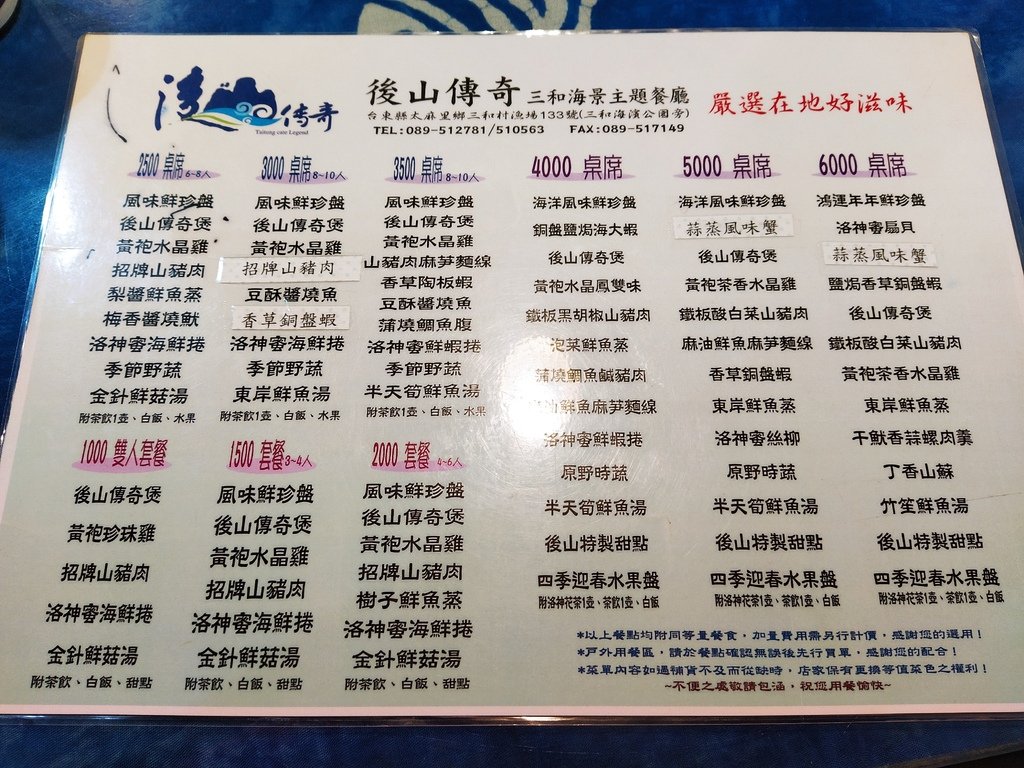 後山傳奇
Taitung cate Legend
後山傳奇 三和海景主題餐廳
嚴選在地好滋味
台東縣太麻里鄉三和村漁場133號(三和海濱公園旁)
TEL:089-512781/510563 FAX:089-517149
2500 桌席 6~8人
風味鮮珍盤
後山傳奇煲
黃袍水晶雞
招牌山豬肉
梨醬鮮魚蒸
梅香醬燒魷
洛神蜜海鮮捲
季節野蔬
金針鮮菇湯
附茶飲1壺、白飯、水果
3000 桌席 8~10人
風味鮮珍盤
後山傳奇煲
黃袍水晶雞
招牌山豬肉
豆酥醬燒魚
香草銅盤蝦
洛神蜜海鮮捲
季節野蔬
東岸鮮魚湯
附茶飲1壺、白飯、水果
3500 桌席 8~10人
風味鮮珍盤
後山傳奇煲
黃袍水晶雞
山豬肉麻笋麵線
香草陶板蝦
豆酥醬燒魚
蒲燒鯛魚腹
洛神蜜鮮蝦捲
季節野蔬
半天筍鮮魚湯
附茶飲1壺、白飯、水果
4000 桌席
海洋風味鮮珍盤
銅盤鹽焗海大蝦
後山傳奇煲
黃袍水晶鳳雙味
鐵板黑胡椒山豬肉
泡菜鮮魚蒸
蒲燒鯛魚鹹豬肉
鮮魚麻笋麵線
洛神蜜鮮蝦捲
原野時蔬
半天筍鮮魚湯
後山特製甜點
四季迎春水果盤
附洛神花茶1壺、茶飲1壺、白飯
5000 桌席
海洋風味鮮珍盤
蒜蒸風味蟹
後山傳奇煲
黃袍茶香水晶雞
鐵板酸白菜山豬肉
麻油鮮魚麻笋麵線
香草銅盤蝦
東岸鮮魚蒸
洛神蜜絲柳
原野時蔬
半天筍鮮魚湯
後山特製甜點
四季迎春水果盤
附洛神花茶1壺、茶飲1壺、白飯
6000 桌席
鴻運年年鮮珍盤
洛神蜜扇貝
蒜蒸風味蟹
鹽焗香草銅盤蝦
後山傳奇煲
鐵板酸白菜山豬肉
黃袍茶香水晶雞
東岸鮮魚蒸
干魷香蒜螺肉羹
丁香山蘇
竹笙鮮魚湯
後山特製甜點
四季迎春水果盤
附洛神花茶1壺、茶飲1壺、白飯
1000 雙人套餐
後山傳奇煲
黃袍珍珠雞
招牌山豬肉
洛神蜜海鮮捲
金針鮮菇湯
附茶飲、白飯、甜點
1500 套餐 3~4人
風味鮮珍盤
後山傳奇煲
黃袍水晶雞
招牌山豬肉
洛神蜜海鮮捲
金針鮮菇湯
附茶飲、白飯、甜點
2000 套餐 4~6人
風味鮮珍盤
後山傳奇煲
黃袍水晶雞
招牌山豬肉
樹子鮮魚蒸
洛神蜜海鮮捲
金針鮮菇湯
附茶飲、白飯、甜點
*以上餐點均附同等量餐食，加量費用需另行計價，感謝您的選用！
*戶外用餐區，請於餐點確認無誤後先行買單，感謝您的配合！
*菜單內容如遇補貨不及而從缺時，店家保有更換等值菜色之權利！
~不便之處敬請包涵，祝您用餐愉快~